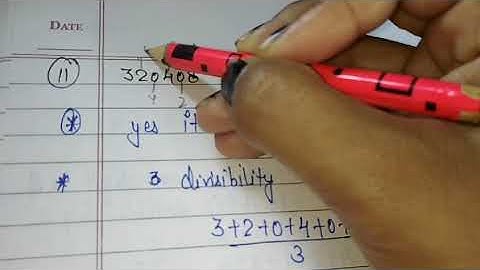 DATE
(11) 320408
4 2
* yes it
* 3 divisibility
3+2+0+4+0+
3